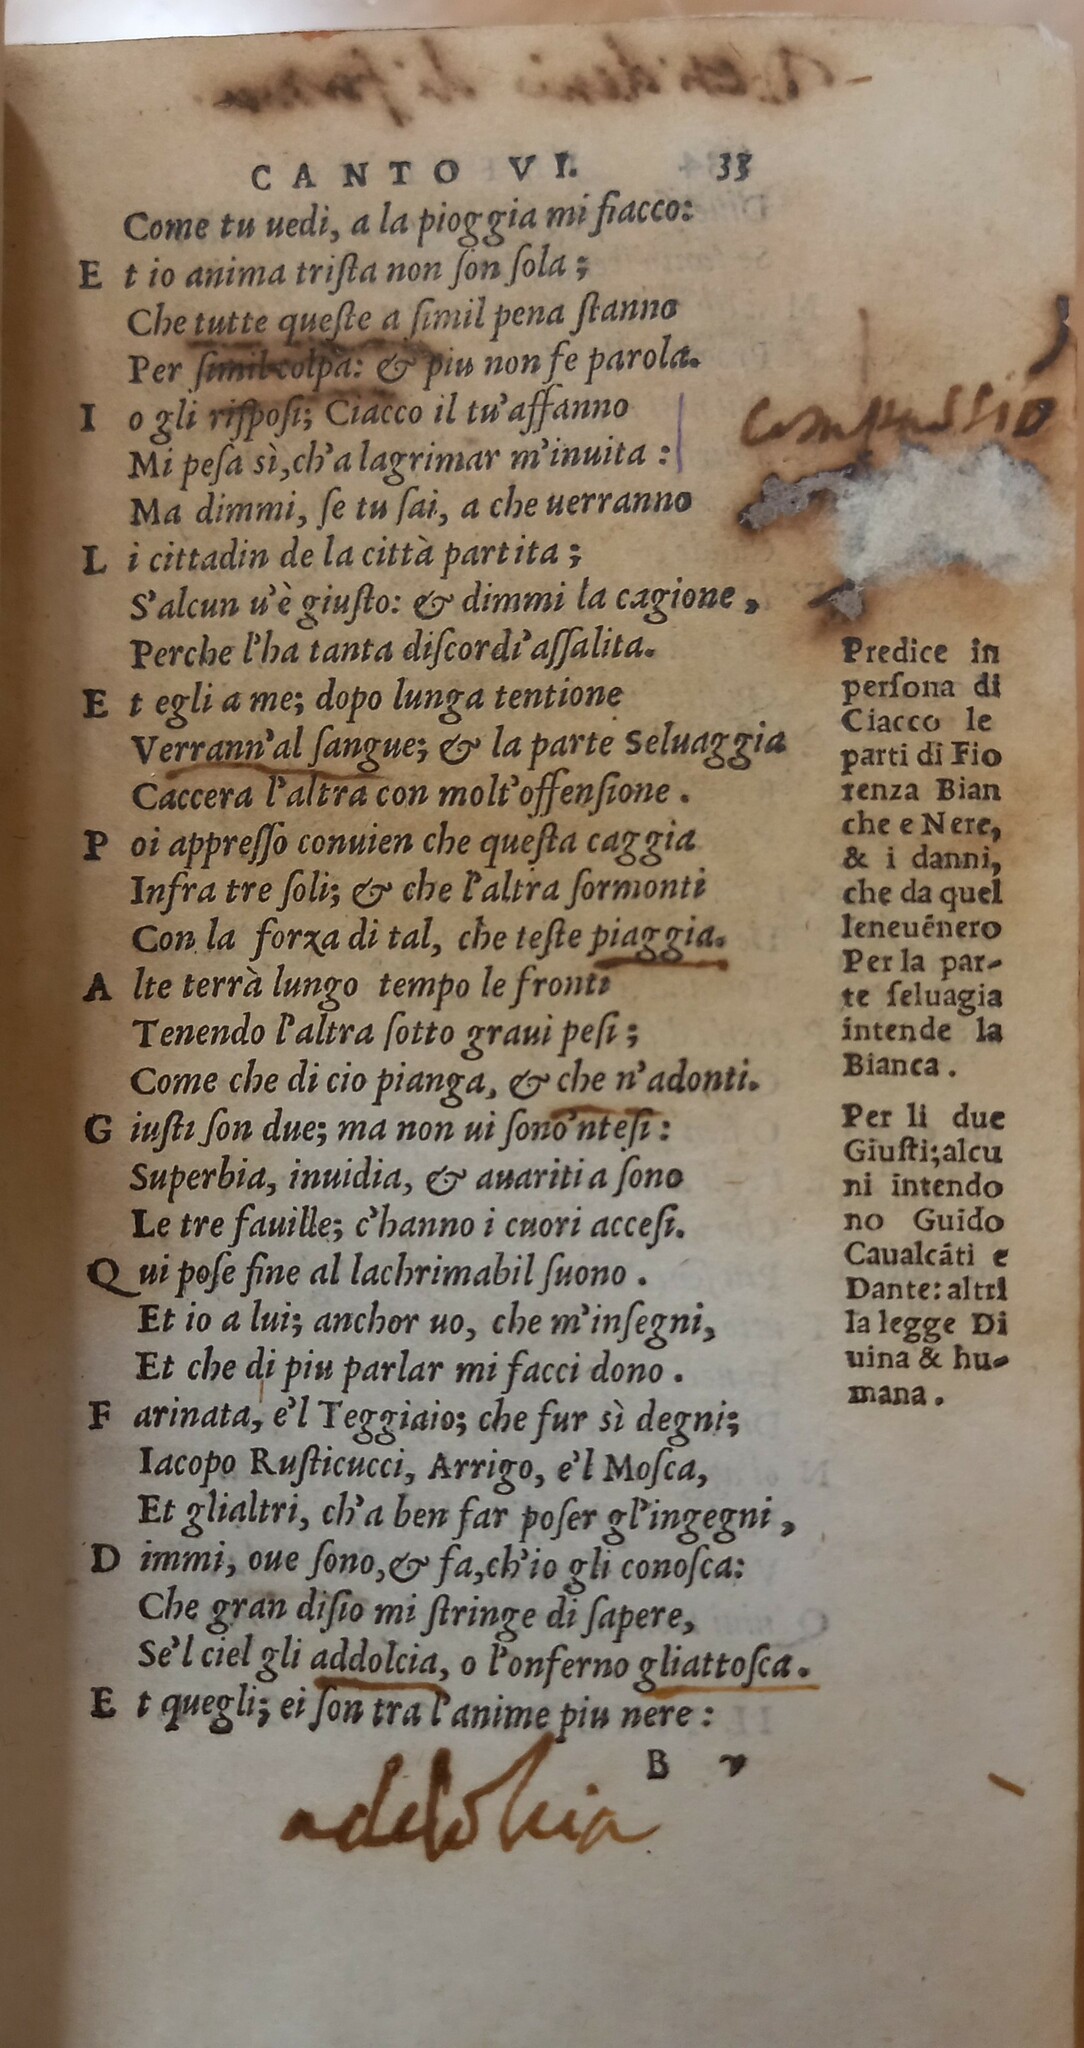 CANTO VI. 33
Come tu uedi, a la pioggia mi fiacco:
Et io anima triſta non ſon ſola;
Che tutte queſte a ſimil pena ſtanno
Per ſimil colpa: & piu non fe parola.
Io gli riſpoſi; Ciacco il tu'affanno
Mi peſa sì, ch'a lagrimar m'inuita:
Ma dimmi, ſe tu ſai, a che uerranno
Li cittadin de la città partita;
S'alcun u'è giuſto: & dimmi la cagione,
Perche l'ha tanta diſcordi'aſſalita.
Et egli a me; dopo lunga tentione
Verrann'al ſangue; & la parte Seluaggia
Caccera l'altra con molt'offenſione.
Poi appreſſo conuien che queſta caggia
Infra tre ſoli; & che l'altra ſormonti
Con la forza di tal, che teſte piaggia.
Alte terrà lungo tempo le fronti
Tenendo l'altra ſotto graui peſi;
Come che di cio pianga, & che n'adonti.
Giuſti ſon due; ma non ui ſono'nteſi:
Superbia, inuidia, & auaritia ſono
Le tre fauille; c'hanno i cuori acceſi.
Qui poſe fine al lachrimabil ſuono.
Et io a lui; anchor uo, che m'inſegni,
Et che di piu parlar mi facci dono.
Farinata, e'l Teggiaio; che fur sì degni;
Iacopo Ruſticucci, Arrigo, e'l Moſca,
Et glialtri, ch'a ben far poſer gl'ingegni,
Dimmi, oue ſono, & fa, ch'io gli conoſca:
Che gran diſio mi ſtringe di ſapere,
Se'l ciel gli addolcia, o l'onferno gliattoſca.
Et quegli; ei ſon tra l'anime piu nere:
B v
Predice in
perſona di
Ciacco le
parti di Fio
renza Bian
che e Nere,
& i danni,
che da quel
leneuēnero
Per la par-
te ſeluagia
intende la
Bianca.
Per li due
Giuſti; alcu
ni intendo
no Guido
Caualcāti e
Dante: altri
la legge Di
uina & hu-
mana.